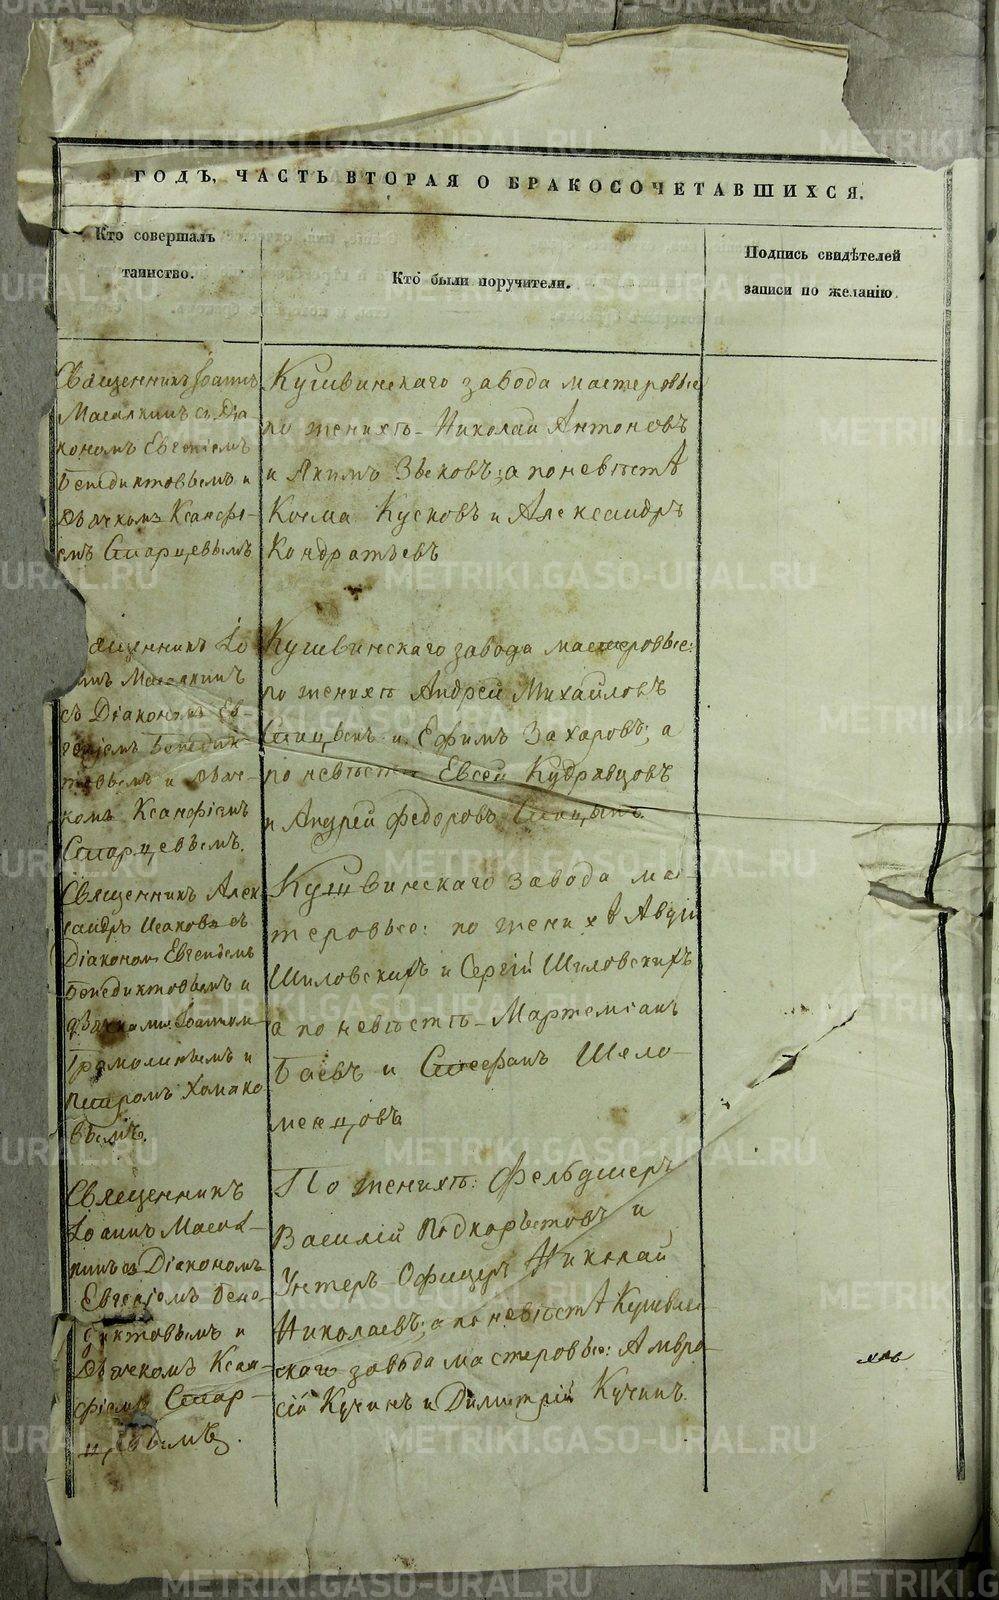 ГОДЪ, ЧАСТЬ ВТОРАЯ О БРАКОСОЧЕТАВШИХСЯ.
Кто совершалъ
таинство.
Кто были поручители.
Подпись свидѣтелей
записи по желанію.
Священникъ Іоаннъ
съ Діа-
кономъ Евгеніемъ
Бенедиктовымъ и
Дьячкомъ Ксанфі-
емъ Старцевымъ
Кушвинскаго завода мастеровые
по женихѣ Николай Антоновъ
и Якимъ Зыковъ; а по невѣстѣ
Косма Кусковъ и Александръ
Кондратьевъ
Священникъ Іо
съ Діакономъ Ев
геніемъ Бенедик-
товымъ и Дьяч-
комъ Ксанфіемъ
Старцевымъ.
Кушвинскаго завода мастеровые:
по женихѣ Андрей Михайловъ
и Ефимъ Захаровъ; а
по невѣстѣ Евсей Кудрявцовъ
и Андрей Федоровъ
Священникъ Алек
сандръ съ
Діакономъ Евгеніемъ
Бенедиктовымъ и
дьячками Іоанномъ
и
Петромъ Хомяко
вымъ.
Кушвинскаго завода мас
теровые: по женихѣ Авдій
Шиловскихъ и Сергій Шиловскихъ
а по невѣстѣ Мартеміанъ
Баевъ и Стефанъ Шело-
менцовъ
Священникъ
Іоаннъ
Діакономъ
Евгеніемъ Бене-
диктовымъ и
Дьячкомъ Ксан-
фіемъ Стар-
цевымъ.
По женихѣ: Фельдшеръ
Василій Подкорытовъ и
Унтеръ-Офицеръ Николай
Николаевъ; а по невѣстѣ Кушвин-
скаго завода мастеровые: Амвро-
сій Кучинъ и Димитрій Кучинъ.
METRIKI.GASO-URAL.RU